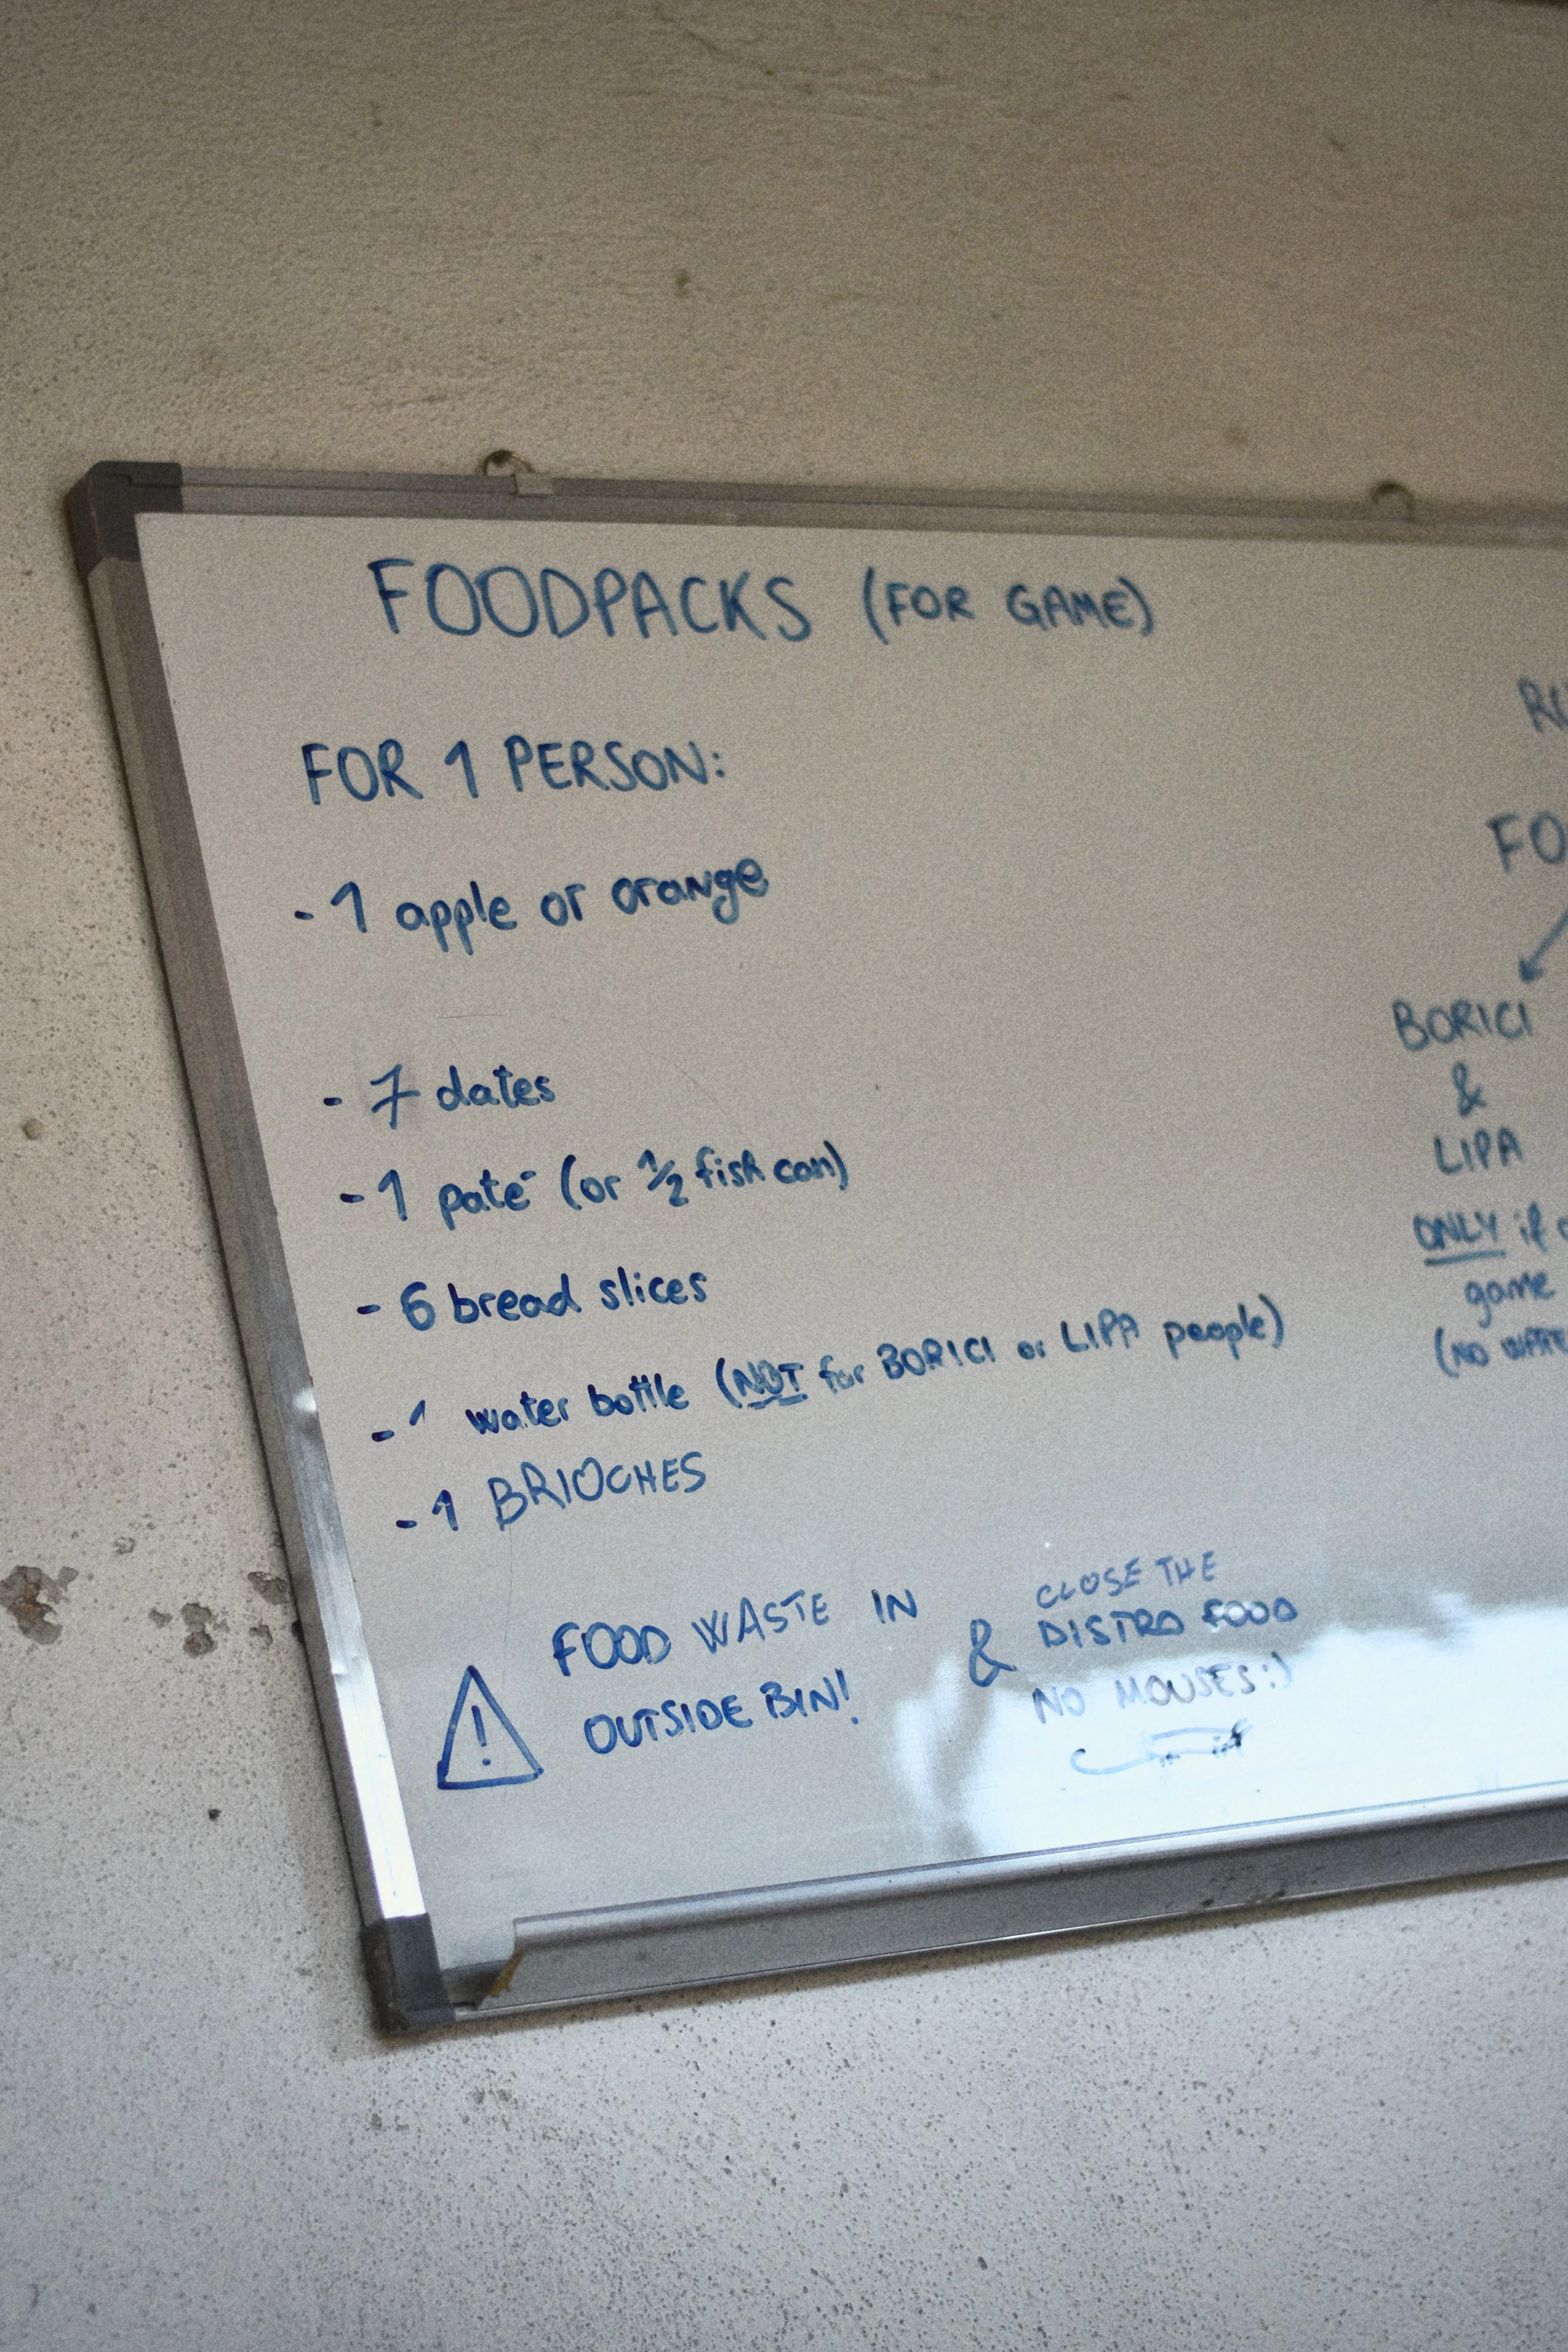 FOODPACKS (FOR GAME)
FOR 1 PERSON:
- 1 apple or orange
- 7 dates
- 1 paté (or 1/2 fish can)
- 6 bread slices
- 1 water bottle (NOT for BORICI or LIPA people)
- 1 BRIOCHES
FOOD WASTE IN
OUTSIDE BIN!
&
CLOSE THE
DISTRO FOOD
NO MOUSES:)
BORICI
&
LIPA
ONLY if
game
(NO